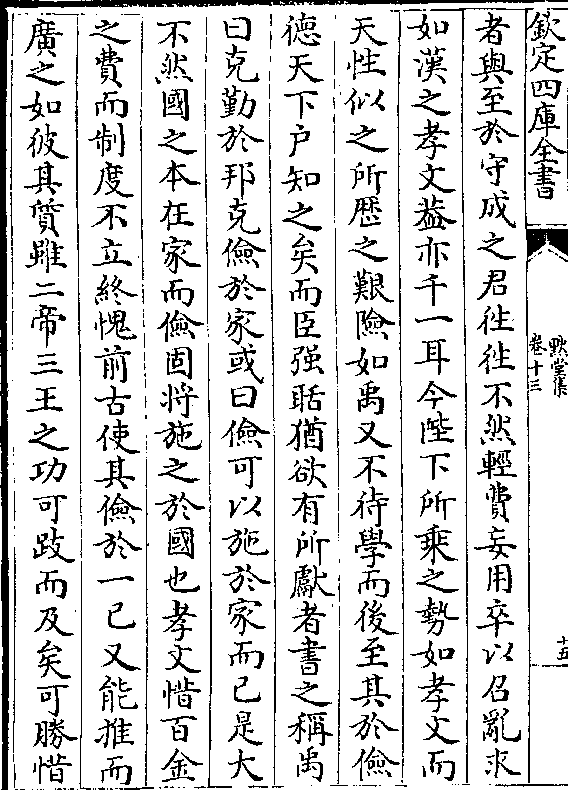 欽定四庫全書
默堂集
卷十三
十五
者與至於守成之君徃徃不然輕費妄用卒以召亂求
如漢之孝文葢亦千一耳今陛下所乘之勢如孝文而
天性似之所歴之艱險如禹又不待學而後至其於儉
德天下户知之矣而臣强聒猶欲有所獻者書之稱禹
曰克勤於邦克儉於家或曰儉可以施於家而已是大
不然國之本在家而儉固將施之於國也孝文惜百金
之費而制度不立終愧前古使其儉於一已又能推而
廣之如彼其質雖二帝三王之功可跂而及矣可勝惜